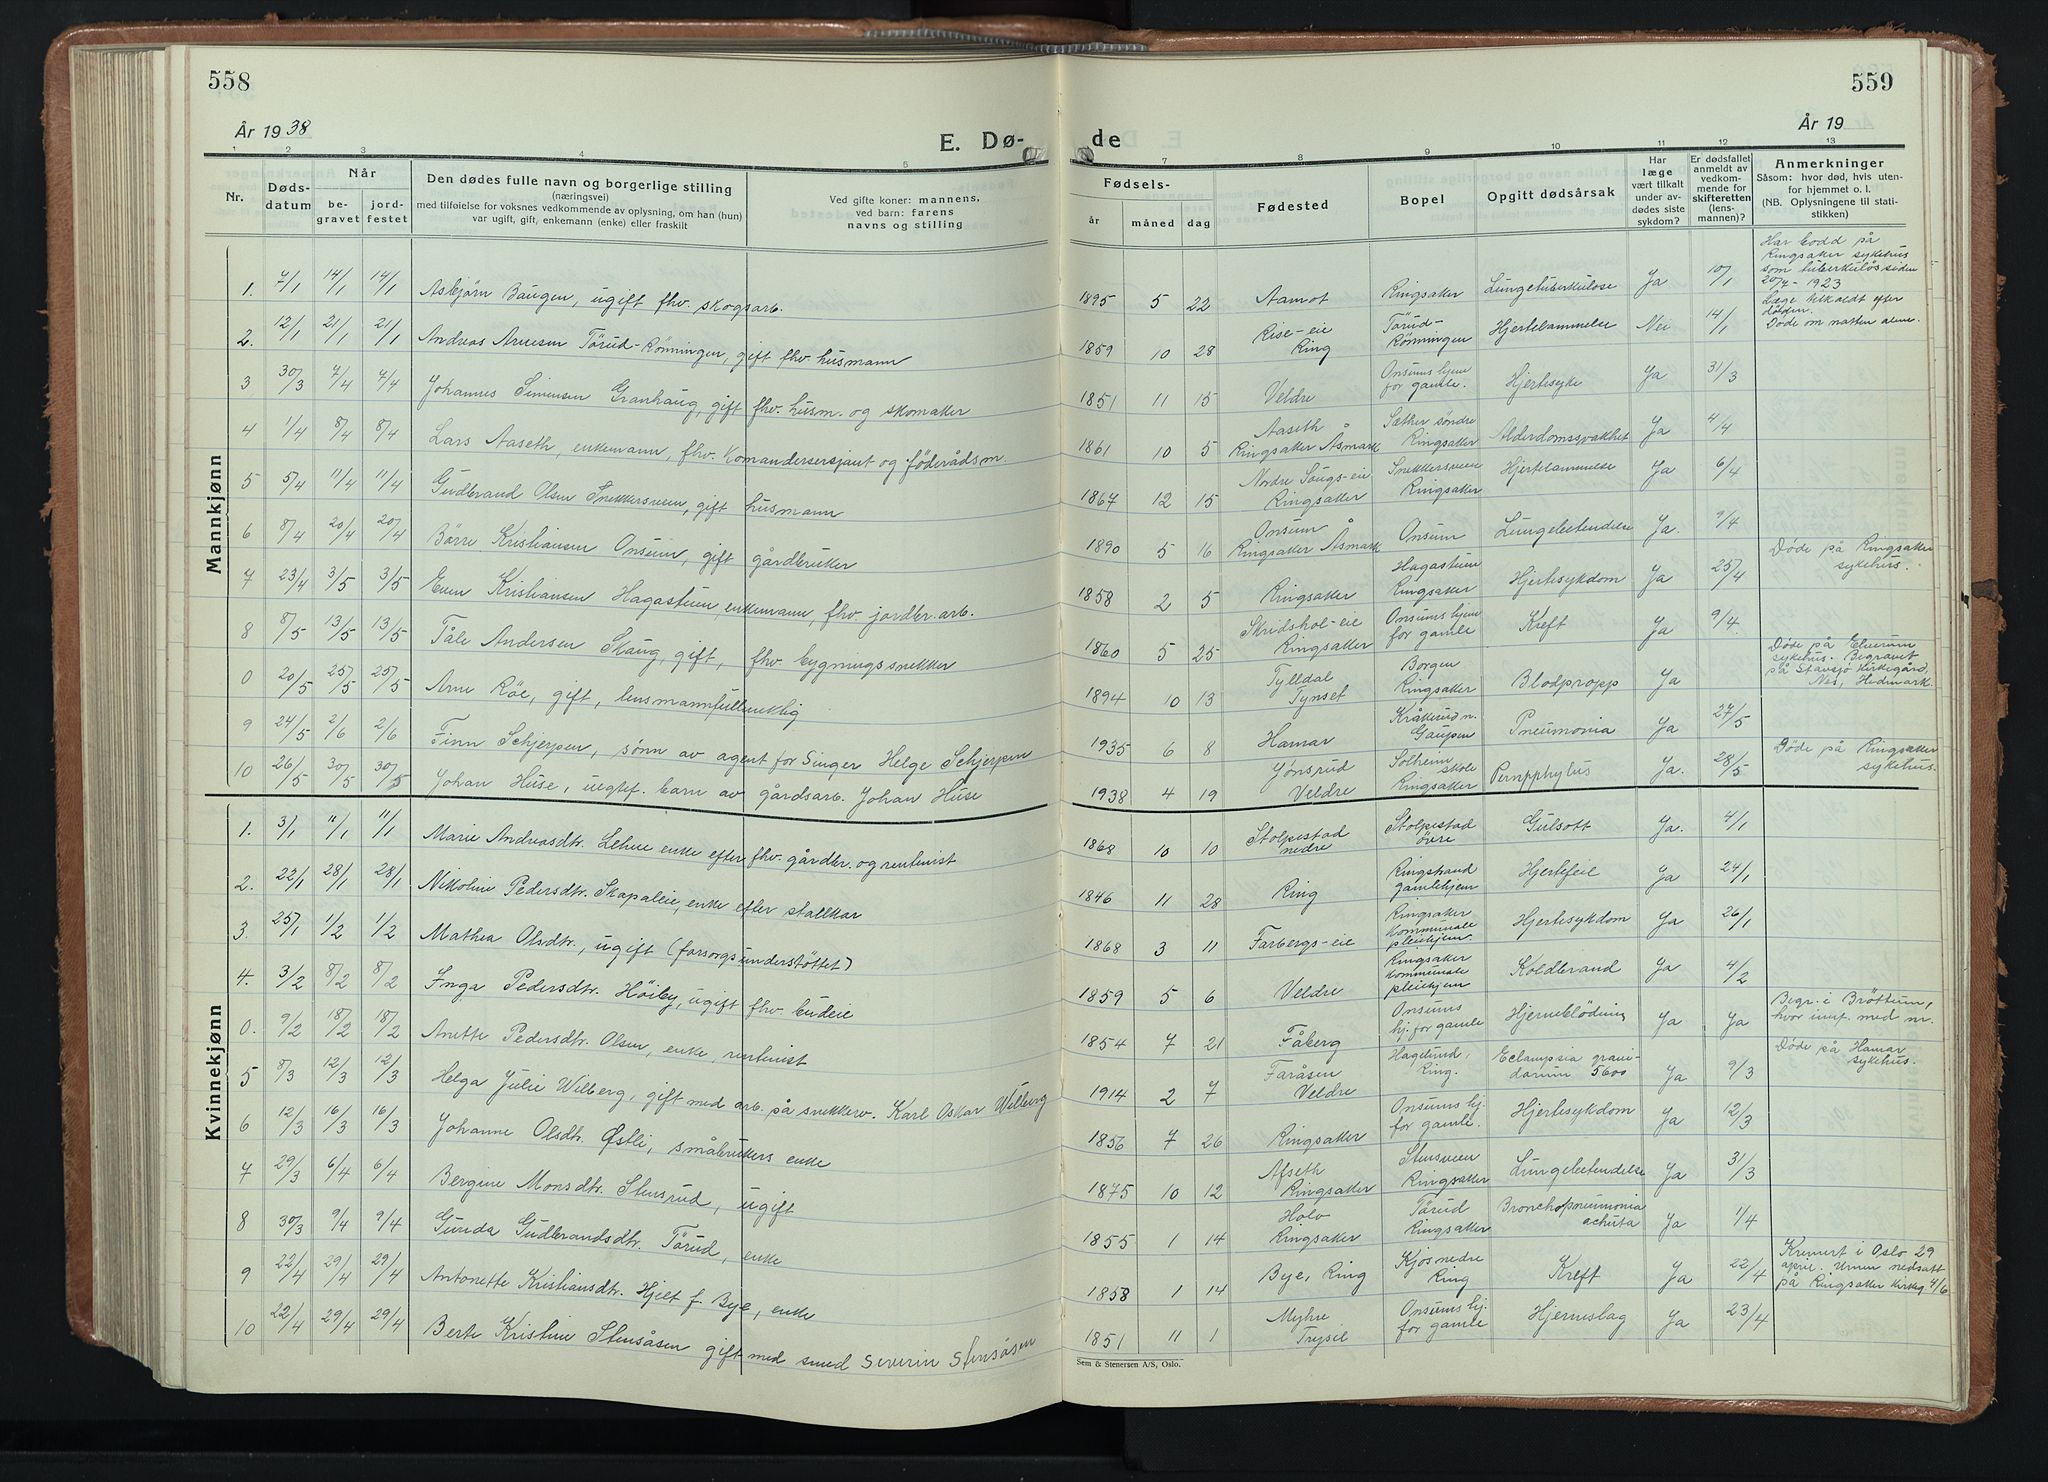 558
559
År 1938
År 19
E. Dø-
de
1 2 3 4 5 7 8 9 10 11 12 13
Nr.
Døds-
datum
Når
be-
gravet
jord-
festet
Den dødes fulle navn og borgerlige stilling
(næringsvei)
med tilføielse for voksnes vedkommende av oplysning, om han (hun)
var ugift, gift, enkemann (enke) eller fraskilt
Ved gifte koner: mannens,
ved barn: farens
navns og stilling
Fødsels-
år måned dag
Fødested
Bopel
Opgitt dødsårsak
Har
læge
vært tilkalt
under av-
dødes siste
sykdom?
Er dødsfallet
anmeldt av
vedkom-
mende for
skifteretten
(lens-
mannen)?
Anmerkninger
Såsom: hvor død, hvis uten-
for hjemmet o. l.
(NB. Oplysningene til stati-
stikken)
Mannkjønn
1. 7/1 14/1 14/1 Asbjørn Baugen, ugift fhv. skogsarb. 1895 5 22 Aamot Ringsaker Lungetuberkulose Ja 10/1 Har bodd på Ringsaker sykehus som tuberkuløs siden 20/4 - 1923
2. 12/1 21/1 21/1 Andreas Arnesen Tørud-Rønningen, gift fhv. husmann 1859 10 28 Rise-eie Ring Tørud-Rønningen Hjertelammelse Nei 14/1 Læge tilkaldt efter døden. Døde om natten alene.
3 30/3 7/4 7/4 Johannes Simensen Granhaug, gift fhv. husm. og skomaker 1851 11 15 Veldre Onsums hjem for gamle. Hjertesyke Ja 31/3
4 1/4 8/4 8/4 Lars Aaseth, enkemann, fhv. Komandersersjant og föderådsm. 1861 10 5 Aaseth Ringsaker Åsmark Sæther søndre Ringsaker Alderdomssvakhet Ja 4/4
5 5/4 11/4 11/4 Gudbrand Olsen Snekkersveen, gift husmann 1867 12 15 Nordre -eie Ringsaker Snekkersveen Ringsaker Hjertelammelse Ja 6/4
6 8/4 20/4 20/4 Börre Kristiansen Onsum, gift gårdbruker 1890 5 16 Onsum Ringsaker Åsmark Onsum Lungebetendelse Ja. 9/4
7 23/4 3/5 3/5 Even Kristiansen Hagasteen, enkemann, fhv. jordbr. arb. 1858 2 5 Ringsaker Hagasteen Ringsaker Hjertesykdom Ja 25/4 Døde på Ringsaker sykehus.
8 8/5 13/5 13/5 Tåle Andersen Skaug, gift, fhv. bygningssnekker 1860 5 25 Skridshol-eie Ringsaker Onsums hjem for gamle Kreft Ja 9/4.
0 20/5 25/5 25/5 Arne Röe, gift, lensmannfullmektig 1894 10 13 Tylldal Tynset Borgen Ringsaker Blodpropp Ja Døde på Elverum sykehus. Begravet på Stavsjø Kirkegård, Nes, Hedmark.
9 24/5 2/6 2/6 Finn Schjerpen, sønn av agent for Singer Helge Schjerpen 1935 6 8 Hamar Kråkerud n. Gaupen Pneumonia Ja 27/5
10 26/5 30/5 30/5 Johan Huse, uegtef. barn av gårdsarb. Johan Huse 1938 4 19 Jønsrud Veldre Solheim skole Ringsaker Ja. 28/5 Døde på Ringsaker sykehus.
Kvinnekjønn
1. 3/1 11/1 11/1 Marie Andreasdtr. Lehne enke efter fhv. gårdbr. og rentenist 1868 10 10 Stolpestad nedre Stolpestad övre Gulsott Ja. 4/1
2. 22/1 28/1 28/1 Nikoline Pedersdtr. Skapaleie, enke efter stallkar 1846 11 28 Ring Ringstrand gamlehjem Hjertefeil Ja 24/1
3. 25/1 1/2 1/2 Mathea Olsdtr., ugift (forsorgsunderstöttet) 1868 3 11 Farbergs-eie Ringsaker Kommunale pleiehjem. Hjertesykdom Ja 26/1
4. 3/2 8/2 8/2 Inga Pedersdtr. Höiby, ugift fhv. budeie 1859 5 6 Veldre Ringsaker kommunale pleiehjem Koldbrand Ja 4/2
0. 9/2 18/2 18/2 Anette Pedersdtr. Olsen, enke, rentenist 1854 7 21 Fåberg Onsums hj. for gamle Hjerneblödning Ja Ja Begr. i Bröttum, hvor innf. med nr.
5 8/3 12/3 12/3 Helga Julie Wilberg, gift med arb. på snekkerv. Karl Oskar Wilberg 1914 2 7 Faråsen Veldre Hagelund, Ring. Eclampsia gravidarum 5600 Ja 9/3 Døde på Hamar sykehus.
6 12/3 16/3 16/3 Johanne Olsdtr. Østli, småbrukers enke 1856 7 26 Ringsaker Onsums hj. for gamle. Hjertesykdom Ja 12/3
7 29/3 6/4 6/4 Bergine Monsdtr. Stensrud, ugift 1875 10 12 Afseth Ringsaker Stensveen Ringsaker Lungebetendelse Ja 31/3
8 30/3 9/4 9/4 Gunda Gudbrandsdtr. Tørud, enke 1855 1 14 Holo Ringsaker Tørud Ringsaker Bronchopneumonia achuta Ja 1/4
9 22/4 29/4 29/4 Antonette Kristiansdtr. Hjelt f. Bye, enke 1858 1 14 Bye, Ring Kjos nedre Ring Kreft Ja 22/4 Kremert i Oslo 29 april. Urnen nedsatt på Ringsaker Kirkeg. 4/6
10 22/4 29/4 29/4 Berte Kristine Stensåsen gift med smed Severin Stensåsen 1851 11 1 Myhre Trysil Onsums hj. for gamle Hjerneslag Ja 23/4
Sem & Stenersen A/S, Oslo.